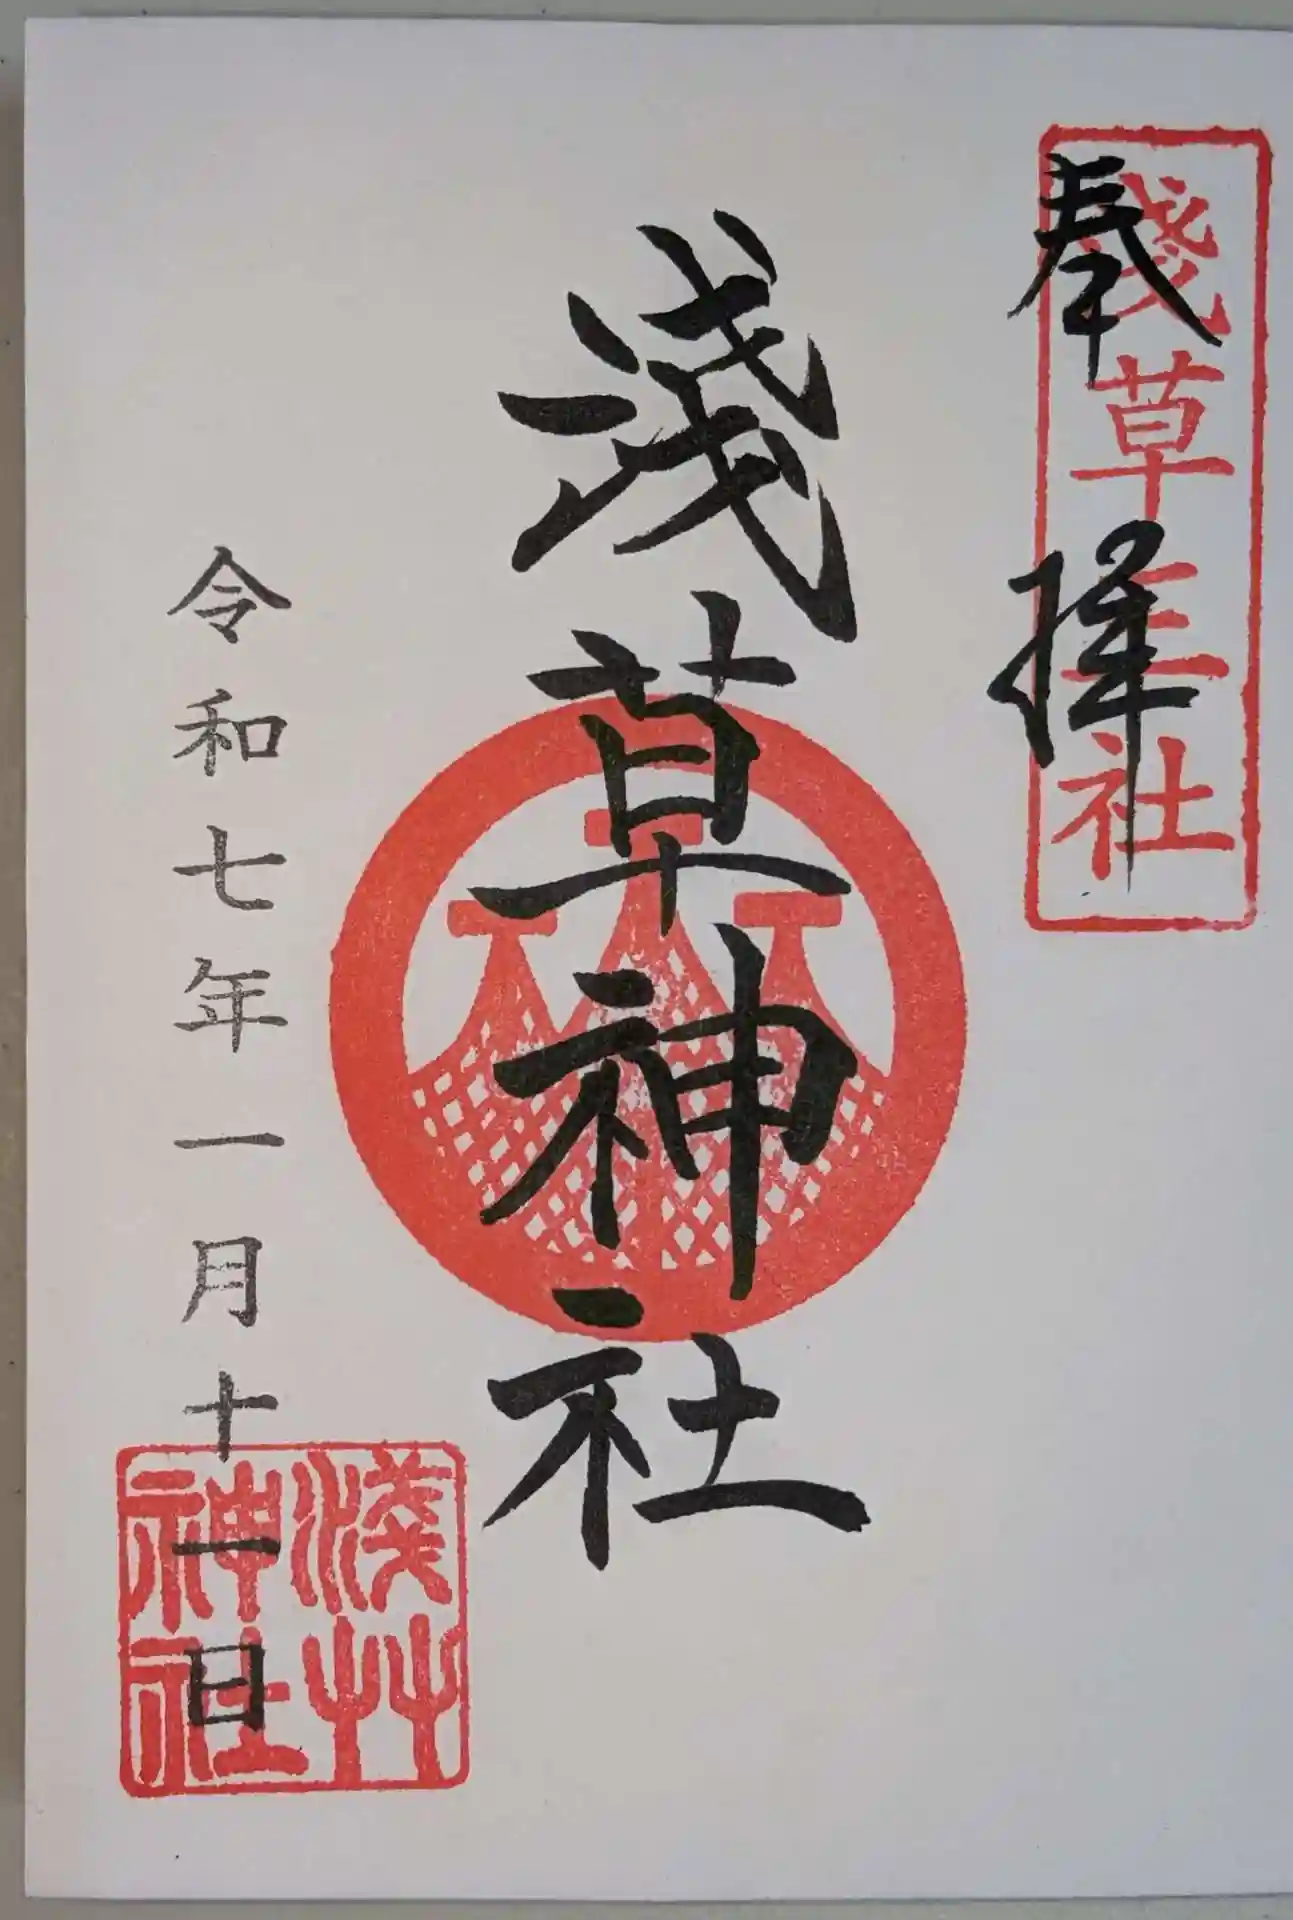 奉拝
淺草三社
浅草神社
令和七年一月十一日
淺艸
神社